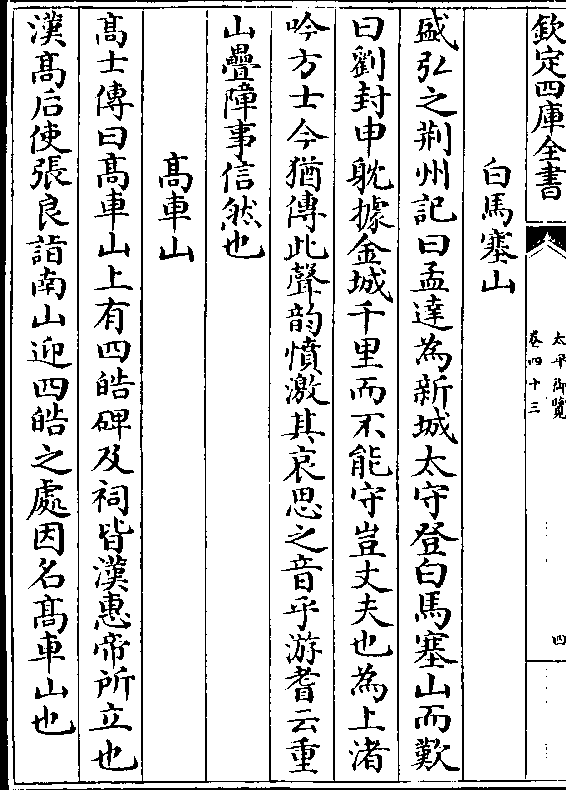 欽定四庫全書
太平御覽
卷四十三
四
白馬塞山
盛弘之荆州記曰孟達為新城太守登白馬塞山而歎
曰劉封申耽據金城千里而不能守豈丈夫也為上渚
吟方士今猶傳此聲韵憤激其哀思之音乎游耆云重
山疊障事信然也
髙車山
髙士傳曰髙車山上有四皓碑及祠皆漢惠帝所立也
漢髙后使張良詣南山迎四皓之處因名髙車山也